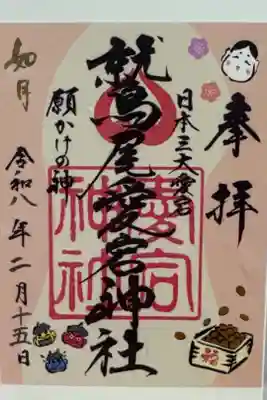 奉拝
日本三大愛宕
鷲尾愛宕神社
愛宕
神社
願かけの神
如月
令和八年二月十五日
福